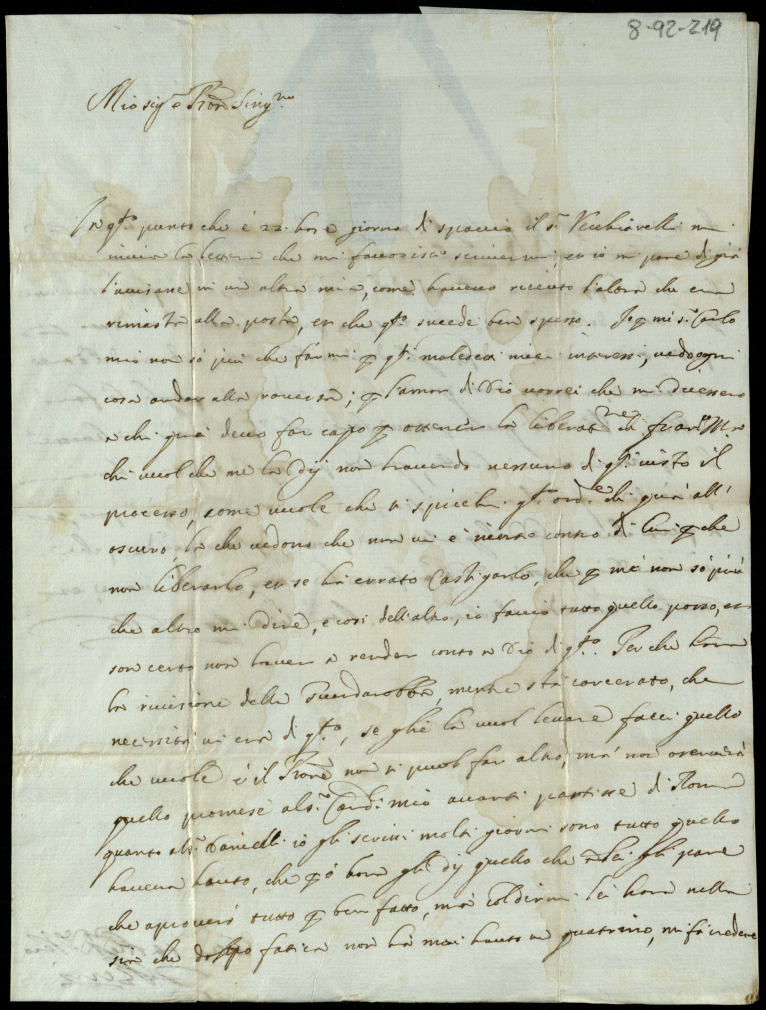 8-92-219
Mio sig.e e Pron Sing.mo
In q.to punto che è 22. hore giorno di spaccio il s.r Vecchiarelli mi
invia la lettera che mi favorisce scrivermi, et io mi pare di già
l'avisare in un altra mia, come havevo ricevuto l'altra che era
rimasta alla posta, et che q.to succede ben spesso. Io mi s.r Carlo
mio non sò più che farmi p q.ti maledeti miei interessi, vedo ogni
cosa andar alla roversa; p l'amor di Dio vorrei che mi dicessero
a chi quà devo far capo p ottener la liberat.ne di Fran.co M.a
chi vuol che me la dij non havendo nessuno di q.ti visto il
processo, come vuole che si spicchi q.to ord.e di quà all'
oscuro, la che vedono che non vi è niente contro di lui p che
non liberarlo, et se hà errato castigarlo, che p me non sò più
che altro mi dire, e così dell'altro, io faccio tutto quello posso, et
son certo non haver a render conto a Dio di q.to. Perche hora
la revisione della Guardarobba, mentre stà carcerato, che
necessità vi era di q.to, se glie la vuol levare facci quello
che vuole è il Prone non si puol far altro, mà non osserverà
quello promese al s.r Card. mio avanti partisse di Roma
quanto al s.r Danielli io gli scrissi molti giorni sono tutto quello
haveva hauto, che p ò hora gli dij quello che a Lei gli pare
che aproverò tutto p ben fatto, mà col dirmi lei hora nella
sua che doppo fatica non hà mai hauto un quatrino, mi fà credere